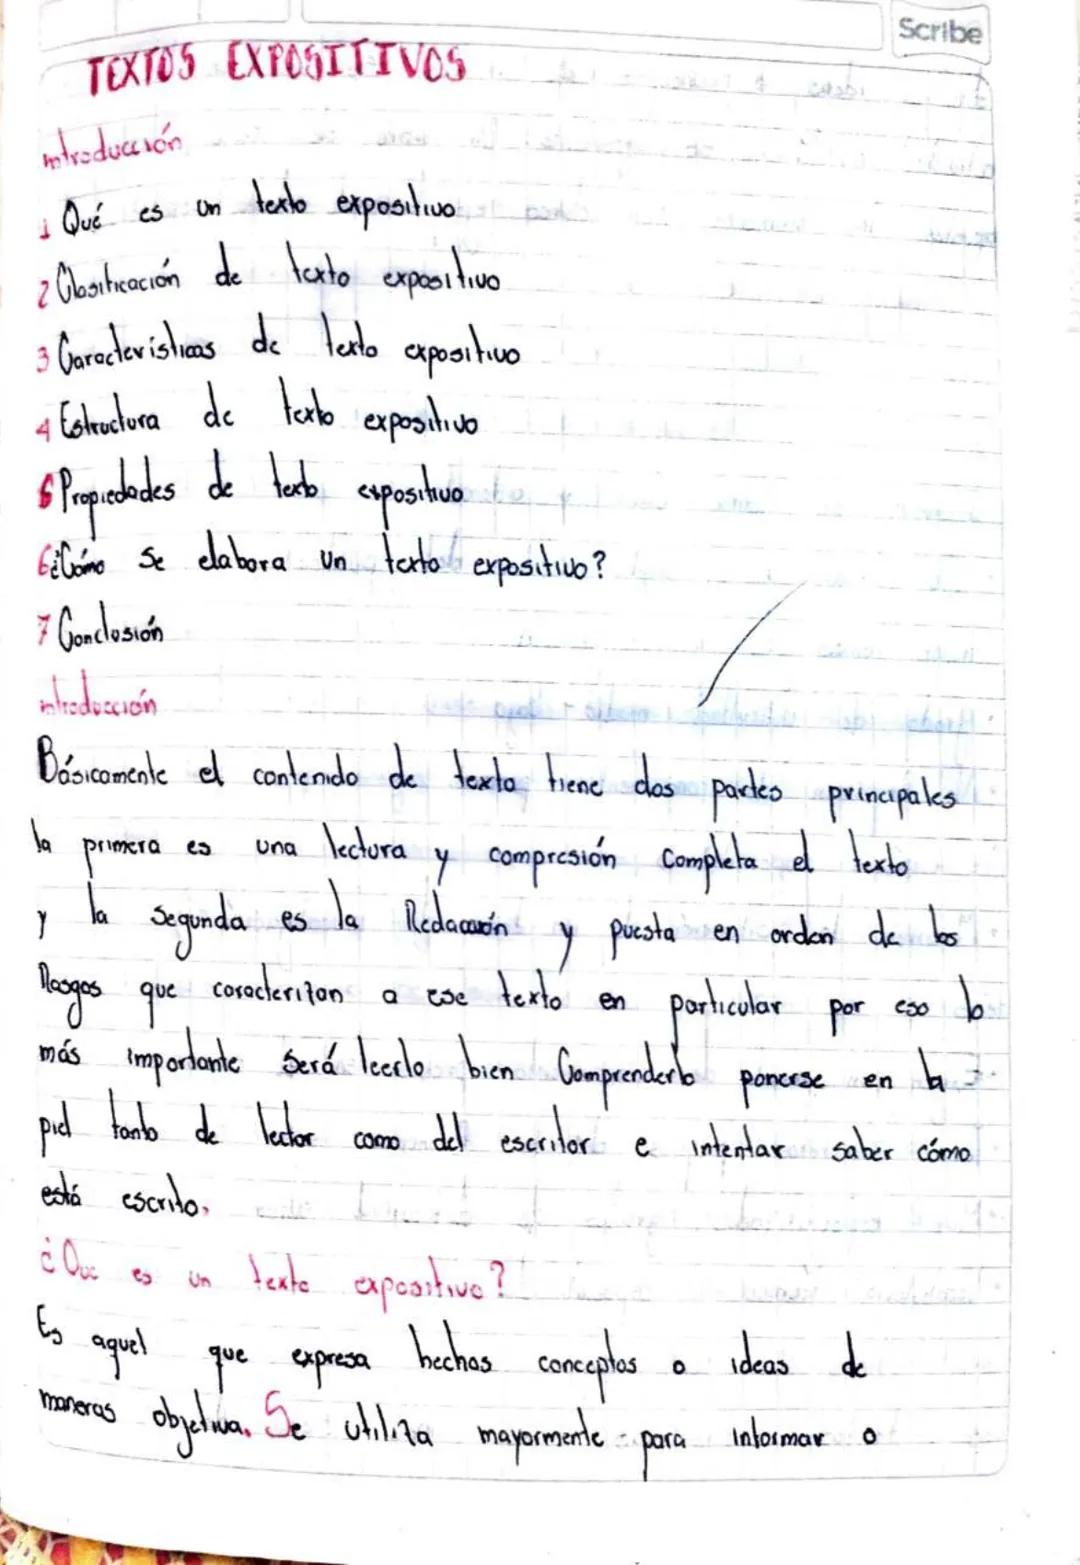 Scribe
TEXTOS EXPOSITIVOS
introducción
1 Qué es un texto expositivo
2 Clasificación de texto expositivo
3 Características de texto expositivo
4 Estructura de texto expositivo
5 Propiedades de texto expositivo
6 ¿Cómo se elabora un texto expositivo?
7 Conclusión
introducción
Básicamente el contenido de texto tiene dos partes principales
la primera es una lectura y compresión Completa el texto
y la segunda es la Redacción y puesta en orden de los
Rasgos que caracterizan a ese texto en particular por eso lo
más importante será leerlo bien Comprenderlo ponerse en la
piel tanto de lector como del escritor e intentar saber cómo
está escrito.
¿Que es un texto expositivo?
Es aquel que expresa hechos conceptos o ideas de
maneras objetiva. Se utiliza mayormente para informar o